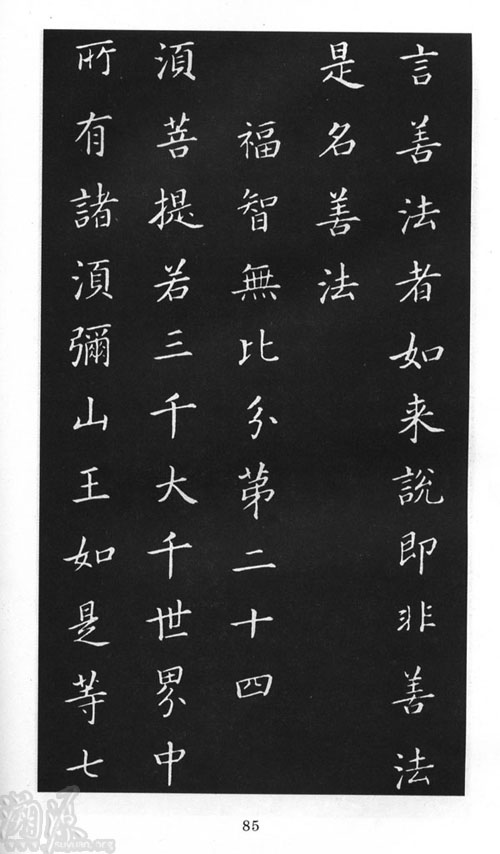 言善法者如来說即非善法
是名善法
福智無比分第二十四
湏菩提若三千大千世界中
所有諸湏彌山王如是等七
85